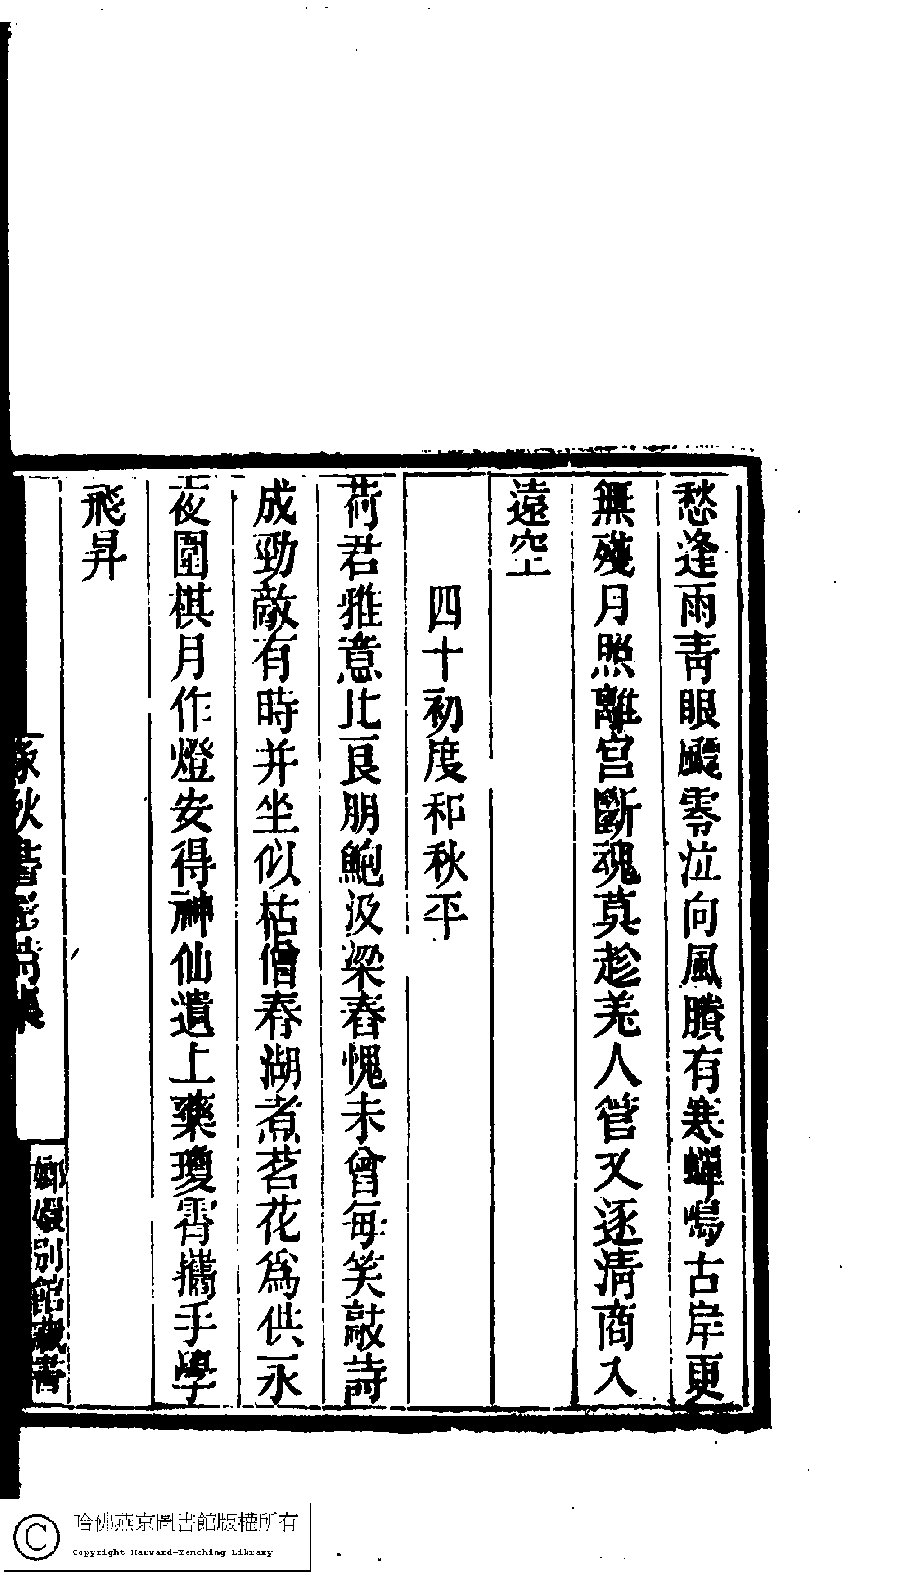 愁逢雨靑眼颸零泣向風賸有寒蟬鳴古岸更
無殘月照離宫斷魂莫趁羌人管又逐淸商入
遠空
四十初度和秋平
荷君雅意比良朋鮑汲梁舂愧未曾每笑敲詩
成勁敵有時并坐似枯僧春湖煮茗花爲供永
夜圍棋月作燈安得神仙遺上藥瓊霄攜手學
飛昇
秋書屋詩集
嫏嬛別館藏書
哈佛燕京圖書館版權所有
Copyright Harvard-Yenching Library